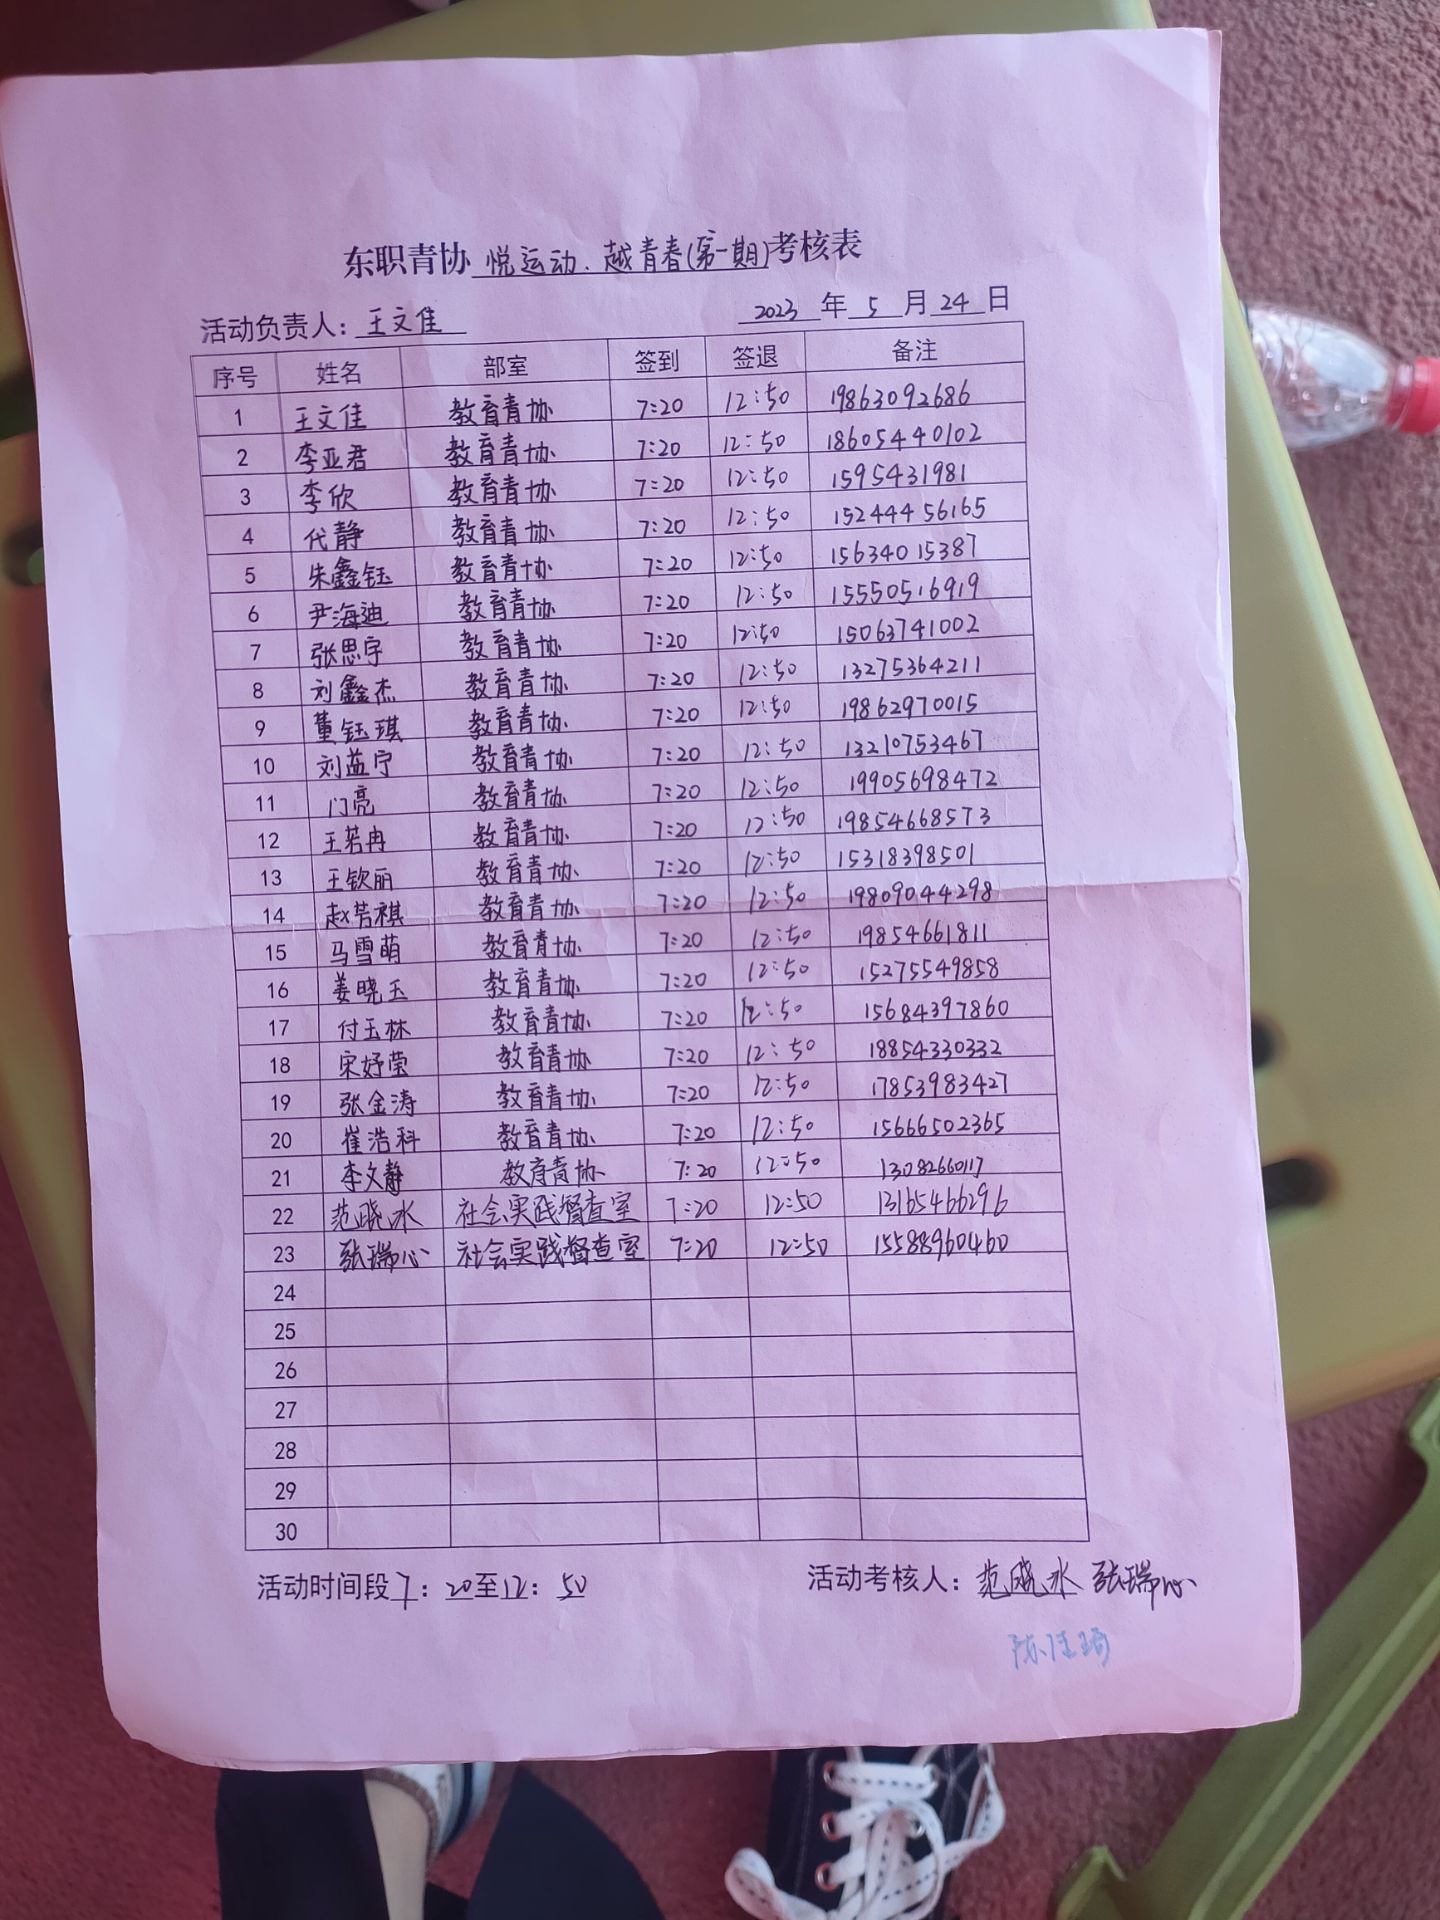 东职青协 悦运动.越青春(第一期)考核表
活动负责人：王文佳 2023 年 5 月 24 日
序号 姓名 部室 签到 签退 备注
1 王文佳 教育青协 7:20 12:50 19863092686
2 李亚君 教育青协 7:20 12:50 18605440102
3 李欣 教育青协 7:20 12:50 1595431981
4 代静 教育青协 7:20 12:50 15244456165
5 朱鑫钰 教育青协 7:20 12:50 15634015387
6 尹海迪 教育青协 7:20 12:50 15550516919
7 张思宇 教育青协 7:20 12:50 15063741002
8 刘鑫杰 教育青协 7:20 12:50 13275364211
9 董钰琪 教育青协 7:20 12:50 19862970015
10 刘益宁 教育青协 7:20 12:50 13210753467
11 门亮 教育青协 7:20 12:50 19905698472
12 王若冉 教育青协 7:20 12:50 19854668573
13 王钦丽 教育青协 7:20 12:50 15318398501
14 赵芳祺 教育青协 7:20 12:50 19809044298
15 马雪萌 教育青协 7:20 12:50 19854661811
16 姜晓玉 教育青协 7:20 12:50 15275549858
17 付玉林 教育青协 7:20 12:50 15684397860
18 宋妤莹 教育青协 7:20 12:50 18854330332
19 张金涛 教育青协 7:20 12:50 17853983427
20 崔浩科 教育青协 7:20 12:50 15666502365
21 李文静 教育青协 7:20 12:50 13082660117
22 范晓冰 社会实践督查室 7:20 12:50 13165466296
23 张瑞心 社会实践督查室 7:20 12:50 15588960460
24
25
26
27
28
29
30
活动时间段7：20至12：50 活动考核人：范晓冰 张瑞心